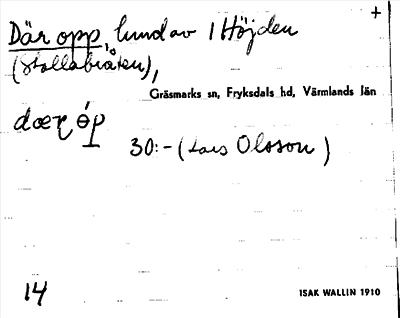 Där opp hundav 1 Höjden +
(Stallabråten),
Gräsmarks sn, Fryksdals hd, Värmlands län
30:- (Lars Olsson)
14
ISAK WALLIN 1910